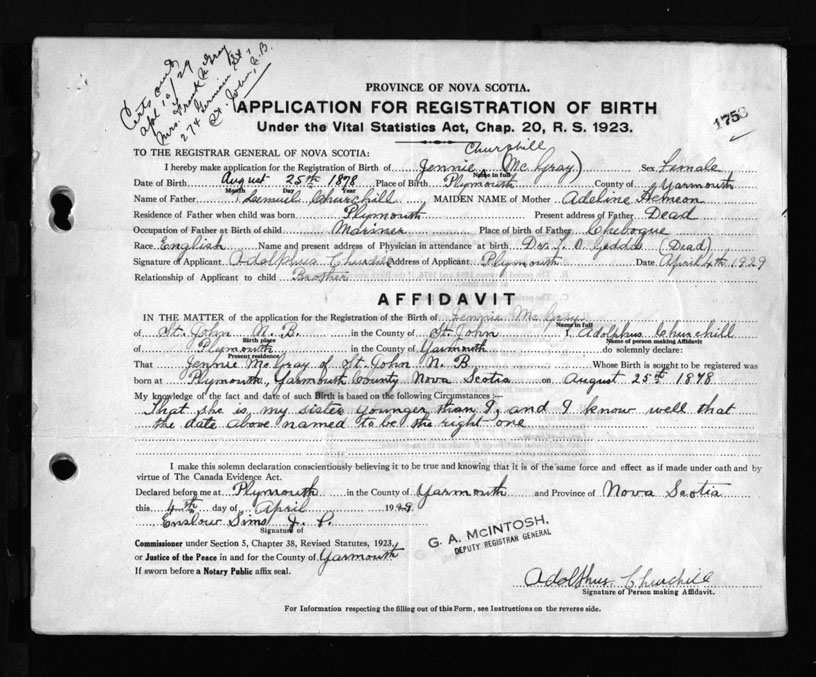 Certs out
Apl 10/29
Mrs. Frank McGray
274 Germain St.
St. John, N.B.
PROVINCE OF NOVA SCOTIA.
APPLICATION FOR REGISTRATION OF BIRTH
Under the Vital Statistics Act, Chap. 20, R. S. 1923.
1753
Churchill
TO THE REGISTRAR GENERAL OF NOVA SCOTIA:
I hereby make application for the Registration of Birth of Jennie (Mc Gray) Sex Female
Name in full
Date of Birth August 25th 1878 Place of Birth Plymouth County of Yarmouth
Month Day Year
Name of Father Lemuel Churchill MAIDEN NAME of Mother Adeline Hemeon
Residence of Father when child was born Plymouth Present address of Father Dead
Occupation of Father at Birth of child Mariner Place of birth of Father Chebogue
Race English Name and present address of Physician in attendance at birth Dr. Geddes (Dead)
Signature of Applicant Adolphus Churchill Address of Applicant Plymouth Date April 4th 1929
Relationship of Applicant to child Brother
AFFIDAVIT
IN THE MATTER of the application for the Registration of the Birth of Jennie Mc Gray
Name in full
of St. John N. B. in the County of St. John I, Adolphus Churchill
Birth place Name of person making Affidavit
of Plymouth in the County of Yarmouth do solemnly declare:
Present residence
That Jennie Mc Gray of St. John N. B. Whose Birth is sought to be registered was
born at Plymouth, Yarmouth County Nova Scotia on August 25th 1878
My knowledge of the fact and date of such Birth is based on the following Circumstances:—
That she is my sister younger than I, and I know well that
the date above named to be the right one
I make this solemn declaration conscientiously believing it to be true and knowing that it is of the same force and effect as if made under oath and by
virtue of The Canada Evidence Act.
Declared before me at Plymouth in the County of Yarmouth and Province of Nova Scotia
this 4th day of April 1929.
Enslow Sims J. P.
Signature of
Commissioner under Section 5, Chapter 38, Revised Statutes, 1923,
or Justice of the Peace in and for the County of Yarmouth
If sworn before a Notary Public affix seal.
G. A. McINTOSH,
DEPUTY REGISTRAR GENERAL
Adolphus Churchill
Signature of Person making Affidavit.
For Information respecting the filling out of this Form, see Instructions on the reverse side.